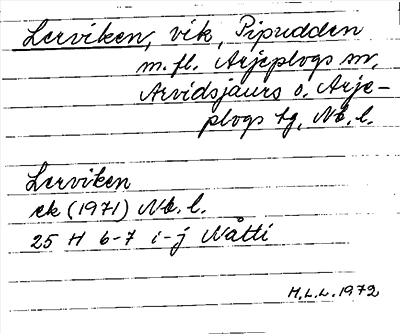 Lerviken, vik, Pipudden
m. fl. Arjeplogs sn,
Arvidsjaurs o. Arje-
plogs tg, Nb. l.
Lerviken
ek (1971) Nb. l.
25 H 6-7 i-j Nåtti
H.L.L. 1972